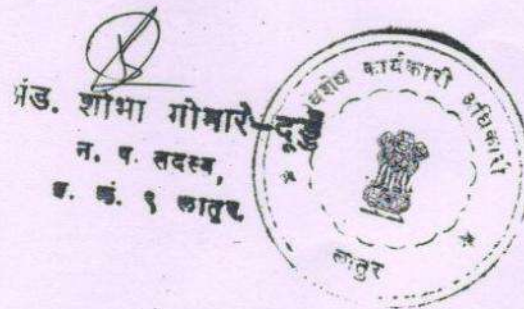 अॅड. शोभा गोमारे-दुडे
न. प. सदस्य,
प्र. क्रं. ९ लातूर.
विशेष कार्यकारी अधिकारी
लातूर